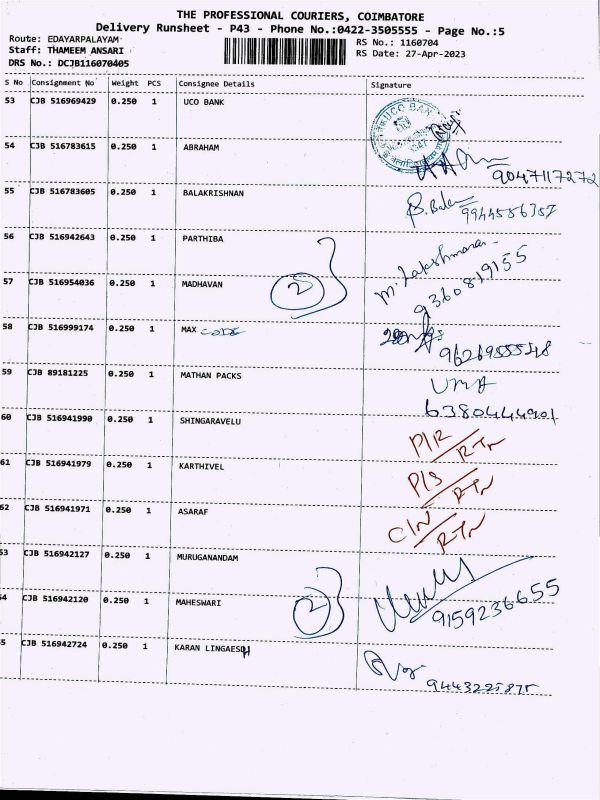 THE PROFESSIONAL COURIERS, COIMBATORE
Delivery Runsheet - P43 - Phone No.:0422-3505555 - Page No.:5
Route: EDAYARPALAYAM
RS No.: 1160704
Staff: THAMEEM ANSARI
RS Date: 27-Apr-2023
DRS No.: DCJB116070405
S No Consignment No Weight PCS Consignee Details Signature
53 CJB 516969429 0.250 1 UCO BANK
UCO BAN
54 CJB 516783615 0.250 1 ABRAHAM
9047117272
55 CJB 516783605 0.250 1 BALAKRISHNAN
B. Balan 9944556357
56 CJB 516942643 0.250 1 PARTHIBA
57 CJB 516954036 0.250 1 MADHAVAN
2
M. Lakshmanan
9360819155
58 CJB 516999174 0.250 1 MAX CODE
9626955548
59 CJB 89181225 0.250 1 MATHAN PACKS
UMA
6380444901
60 CJB 516941990 0.250 1 SHINGARAVELU
P/R RTN
61 CJB 516941979 0.250 1 KARTHIVEL
P/S RTN
62 CJB 516941971 0.250 1 ASARAF
C/N RTN
53 CJB 516942127 0.250 1 MURUGANANDAM
54 CJB 516942120 0.250 1 MAHESWARI
2
9159236655
5 CJB 516942724 0.250 1 KARAN LINGAESH
9443225875